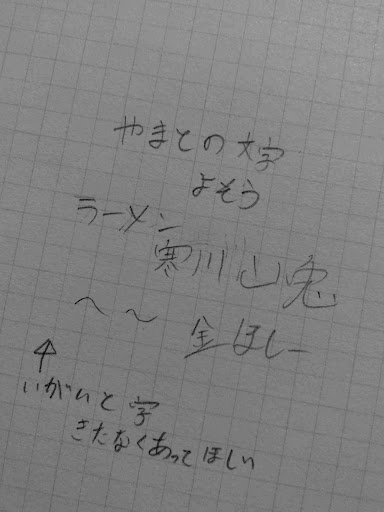 やまとの文字
よそう
ラーメン
寒川山兎
〜〜 金ほしー
↑
いがいと字
きたなくあってほしい